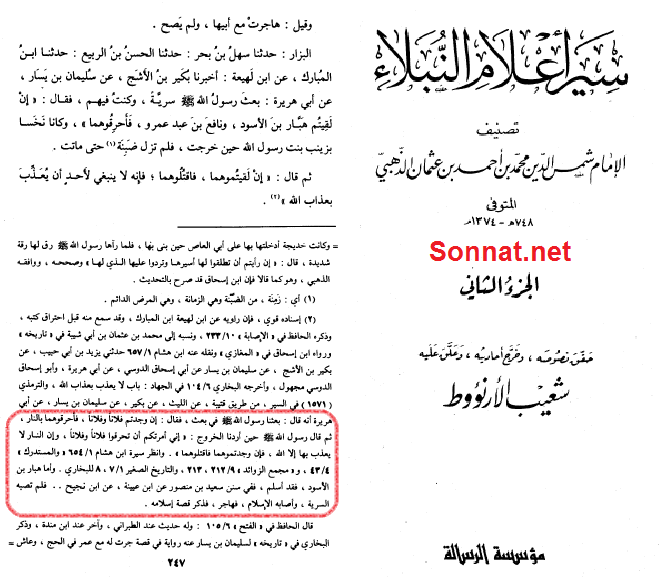 سير أعلام النبلاء
تصنيف
الإمام شمس الدين محمد بن أحمد بن عثمان الذهبي
المتوفى
٧٤٨هـ - ١٣٧٤م
Sonnat.net
الجزء الثاني
حقق نصوصه ، وخرج أحاديثه ، وعلق عليه
شعيب الأرنؤوط
مؤسسة الرسالة
وقيل : هاجرتْ مع أبيها ، ولم يَصح .
البزار : حدثنا سهلُ بنُ بحر : حدثنا الحسنُ بنُ الربيع : حدثنا ابنُ
المُبارك ، عن ابن لهيعة : أخبرنا بُكَير بنُ الأشَج ، عن سُليمان بنِ يَسَار ،
عن أبي هريرة : بعثَ رسولُ الله ﷺ سريةً ، وكنتُ فيهم ، فقال : « إنْ
لَقِيتُم هَبَّار بنَ الأسود ، ونافعَ بنَ عبد عمرو ، فأَحرِقُوهما » ، وكانا نَخَسَا
بزينبَ بنت رسول الله حين خرجت ، فلم تزل ضَبِنَة (١) حتى ماتت .
ثم قال : « إنْ لَقيتُموهما ، فاقتُلُوهما ؛ فإنه لا ينبغي لأحدٍ أن يُعَذِّبَ
بعذاب الله » (٢) .
= وكانت خديجة أدخلتها بها على أبي العاص حين بنى بها ، فلما رآها رسول الله ﷺ رق لها رقة
شديدة ، قال : « إن رأيتم أن تطلقوا لها أسيرها وتردوا عليها الذي لها » وصححه ، ووافقه
الذهبي ، وهو كما قالا فإن ابن إسحاق قد صرح بالتحديث .
(١) أي : زَمِنَة ، من الضَّبْنة وهي الزمانة ، وهي المرض الدائم .
(٢) إسناده قوي ، فإن راويه عن ابن لهيعة ابن المبارك ، وقد سمع منه قبل احتراق كتبه ،
وذكره الحافظ في « الإصابة » ١٠/٢٣٣ ، ونسبه إلى محمد بن عثمان بن أبي شيبة في « تاريخه »
ورواه ابن إسحاق في « المغازي » ونقله عنه ابن هشام ١/٦٥٧ حدثني يزيد بن أبي حبيب ، عن
بكير بن الأشج ، عن سليمان بن يسار عن أبي إسحاق الدوسي ، عن أبي هريرة ، وأبو إسحاق
الدوسي مجهول ، وأخرجه البخاري ٦/١٠٤ في الجهاد : باب لا يعذب بعذاب الله ، والترمذي
(١٥٧١) في السير ، من طريق قتيبة ، عن الليث ، عن بكير ، عن سليمان بن يسار ، عن أبي
هريرة أنه قال : بعثنا رسول الله ﷺ في بعث ، فقال : إن وجدتم فلاناً وفلاناً ، فأحرقوهما بالنار ،
ثم قال رسول الله ﷺ حين أردنا الخروج : « إني أمرتكم أن تحرقوا فلاناً وفلاناً ، وإن النار لا
يعذب بها إلا الله ، فإن وجدتموهما فاقتلوهما » . وانظر سيرة ابن هشام ١/٦٥٤ « والمستدرك »
٤/٤٣ ، و « مجمع الزوائد » ٩/٢١٢ ، ٢١٣ ، والتاريخ الصغير ١/٧ ، ٨ للبخاري . وأما هبار بن
الأسود ، فقد أسلم ، ففي سنن سعيد بن منصور عن ابن عيينة ، عن ابن نجيح .. فلم تصبه
السرية ، وأصابه الإسلام ، فهاجر ، فذكر قصة إسلامه .
قال الحافظ في « الفتح » ٦/١٠٥ : وله حديث عند الطبراني ، وآخر عند ابن مندة ، وذكر
البخاري في « تاريخه » لسليمان بن يسار عنه رواية في قصة جرت له مع عمر في الحج ، وعاش =
٢٤٧